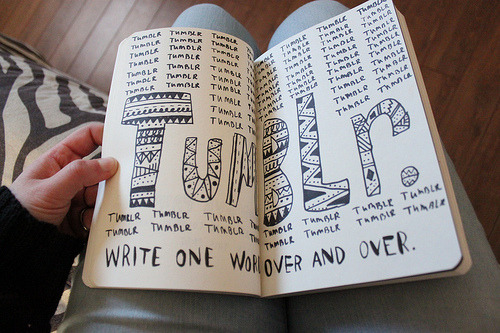 TUMBLR TUMBLR TUMBLR
TUMBLR TUMBLR TUMBLR
TUMBLR TUMBLR TUMBLR
TUMBLR TUMBLR TUMBLR
TUMBLR TUMBLR TUMBLR
TUMBLR
TUMBLR
TUMBLR
TUMBLR TUMBLR TUMBLR
TUMBLR TUMBLR TUMBLR TUMBLR
TUMBLR TUMBLR TUMBLR TUMBLR
TUMBLR TUMBLR TUMBLR TUMBLR
TUMBLR TUMBLR TUMBLR TUMBLR
TUMBLR TUMBLR TUMBLR
TUMBLR TUMBLR
TUMBLR TUMBLR
TUMBLR
TUMBLR.
TUMBLR TUMBLR TUMBLR TUMBLR TUMBLR TUMBLR TUMBLR
TUMBLR TUMBLR TUMBLR TUMBLR TUMBLR TUMBLR TUMBLR
WRITE ONE WORD OVER AND OVER.